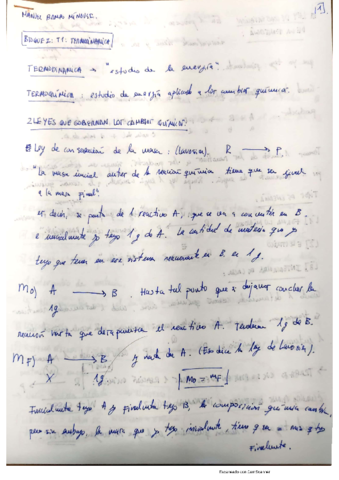 [1]
TERMODINÁMICA → "estudio de la energía".
TERMOQUÍMICA: estudio de energía aplicado a los cambios químicos.
2 LEYES QUE GOBIERNAN LOS CAMBIOS QUÍMICOS:
Ley de conservación de la masa: R → P
"La masa inicial antes de la reacción química tiene que ser igual
a la masa final"
es decir, se parte de 1 reactivo A, que se va a convertir en B,
e inicialmente yo tengo 1 g de A. La cantidad de materia que yo
tengo que tener en ese sistema nuevamente es 1g.
Mo) A → B. Hasta tal punto que si dejamos concluir la
1g
reacción hasta que desaparezca el reactivo A. Tendremos 1g de B.
MF) A → B y nada de A.
X 1g Mo = MF
Inicialmente tengo A y finalmente tengo B, la composición química cambia,
pero sin embargo la masa que yo tengo inicialmente, tiene que ser
finalmente.
Escaneado con CamScanner